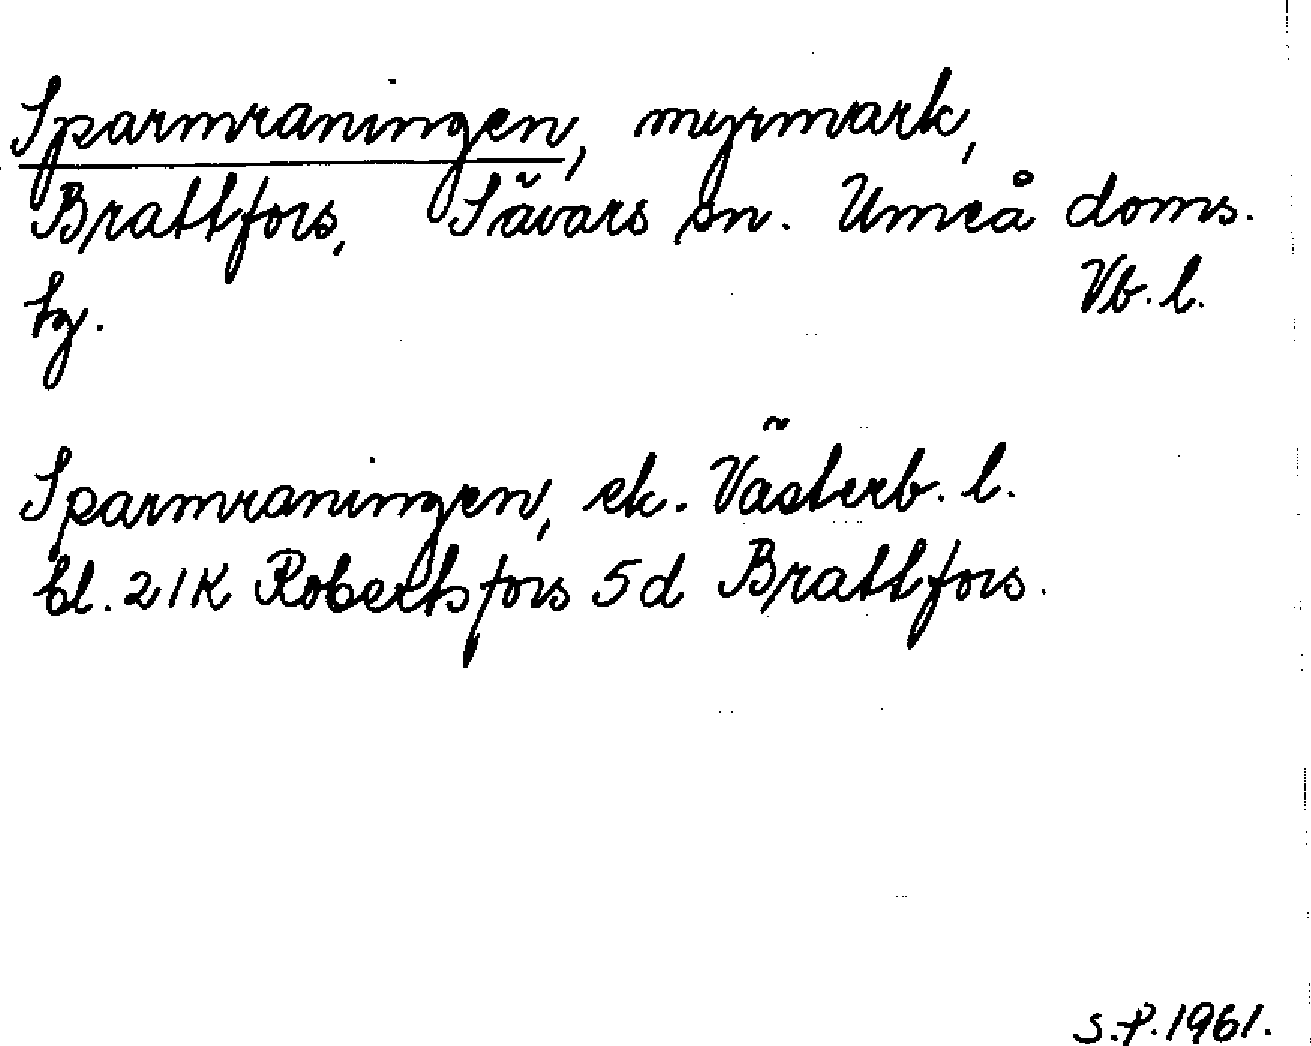 Sparmraningen, myrmark,
Brattfors, Sävars sn. Umeå doms.
hg. Vb. l.
Sparmraningen, ek. Västerb. l.
bl. 21K Robertsfors 5d Brattfors.
S.P. 1961.